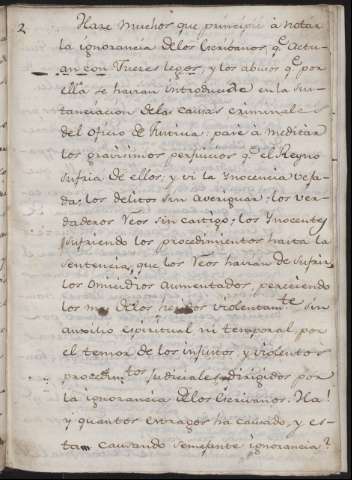 2
Haze Muchos que principié à notár
la ignorancia de los Escrivanos q.e actu-
an con Jueces legos, y los abusos q.e por
ella se havian introducido en la sus-
tanciacion de las causas criminales
del oficio de Justicia: pasé à meditar
los gravísimos perjuicios q.e el Reyno
sufria de ellos; y vi la Ynocencia veja-
da; los delitos sin averiguar; los ver-
daderos reos sin castigo; los Ynocentes
sufriendo los procedimientos hasta la
sentencia, que los reos havian de sufrir;
los Omicidios aumentados, pereciendo
los mas de los heridos violentam.te sin
ausilio espiritual ni temporal por
el temor de los injustos y violentos
procedim.tos judiciales dirigidos por
la ignorancia de los Escrivanos. Ha!
y quantos estragos ha causado, y es-
ta causando semejante ignorancia?